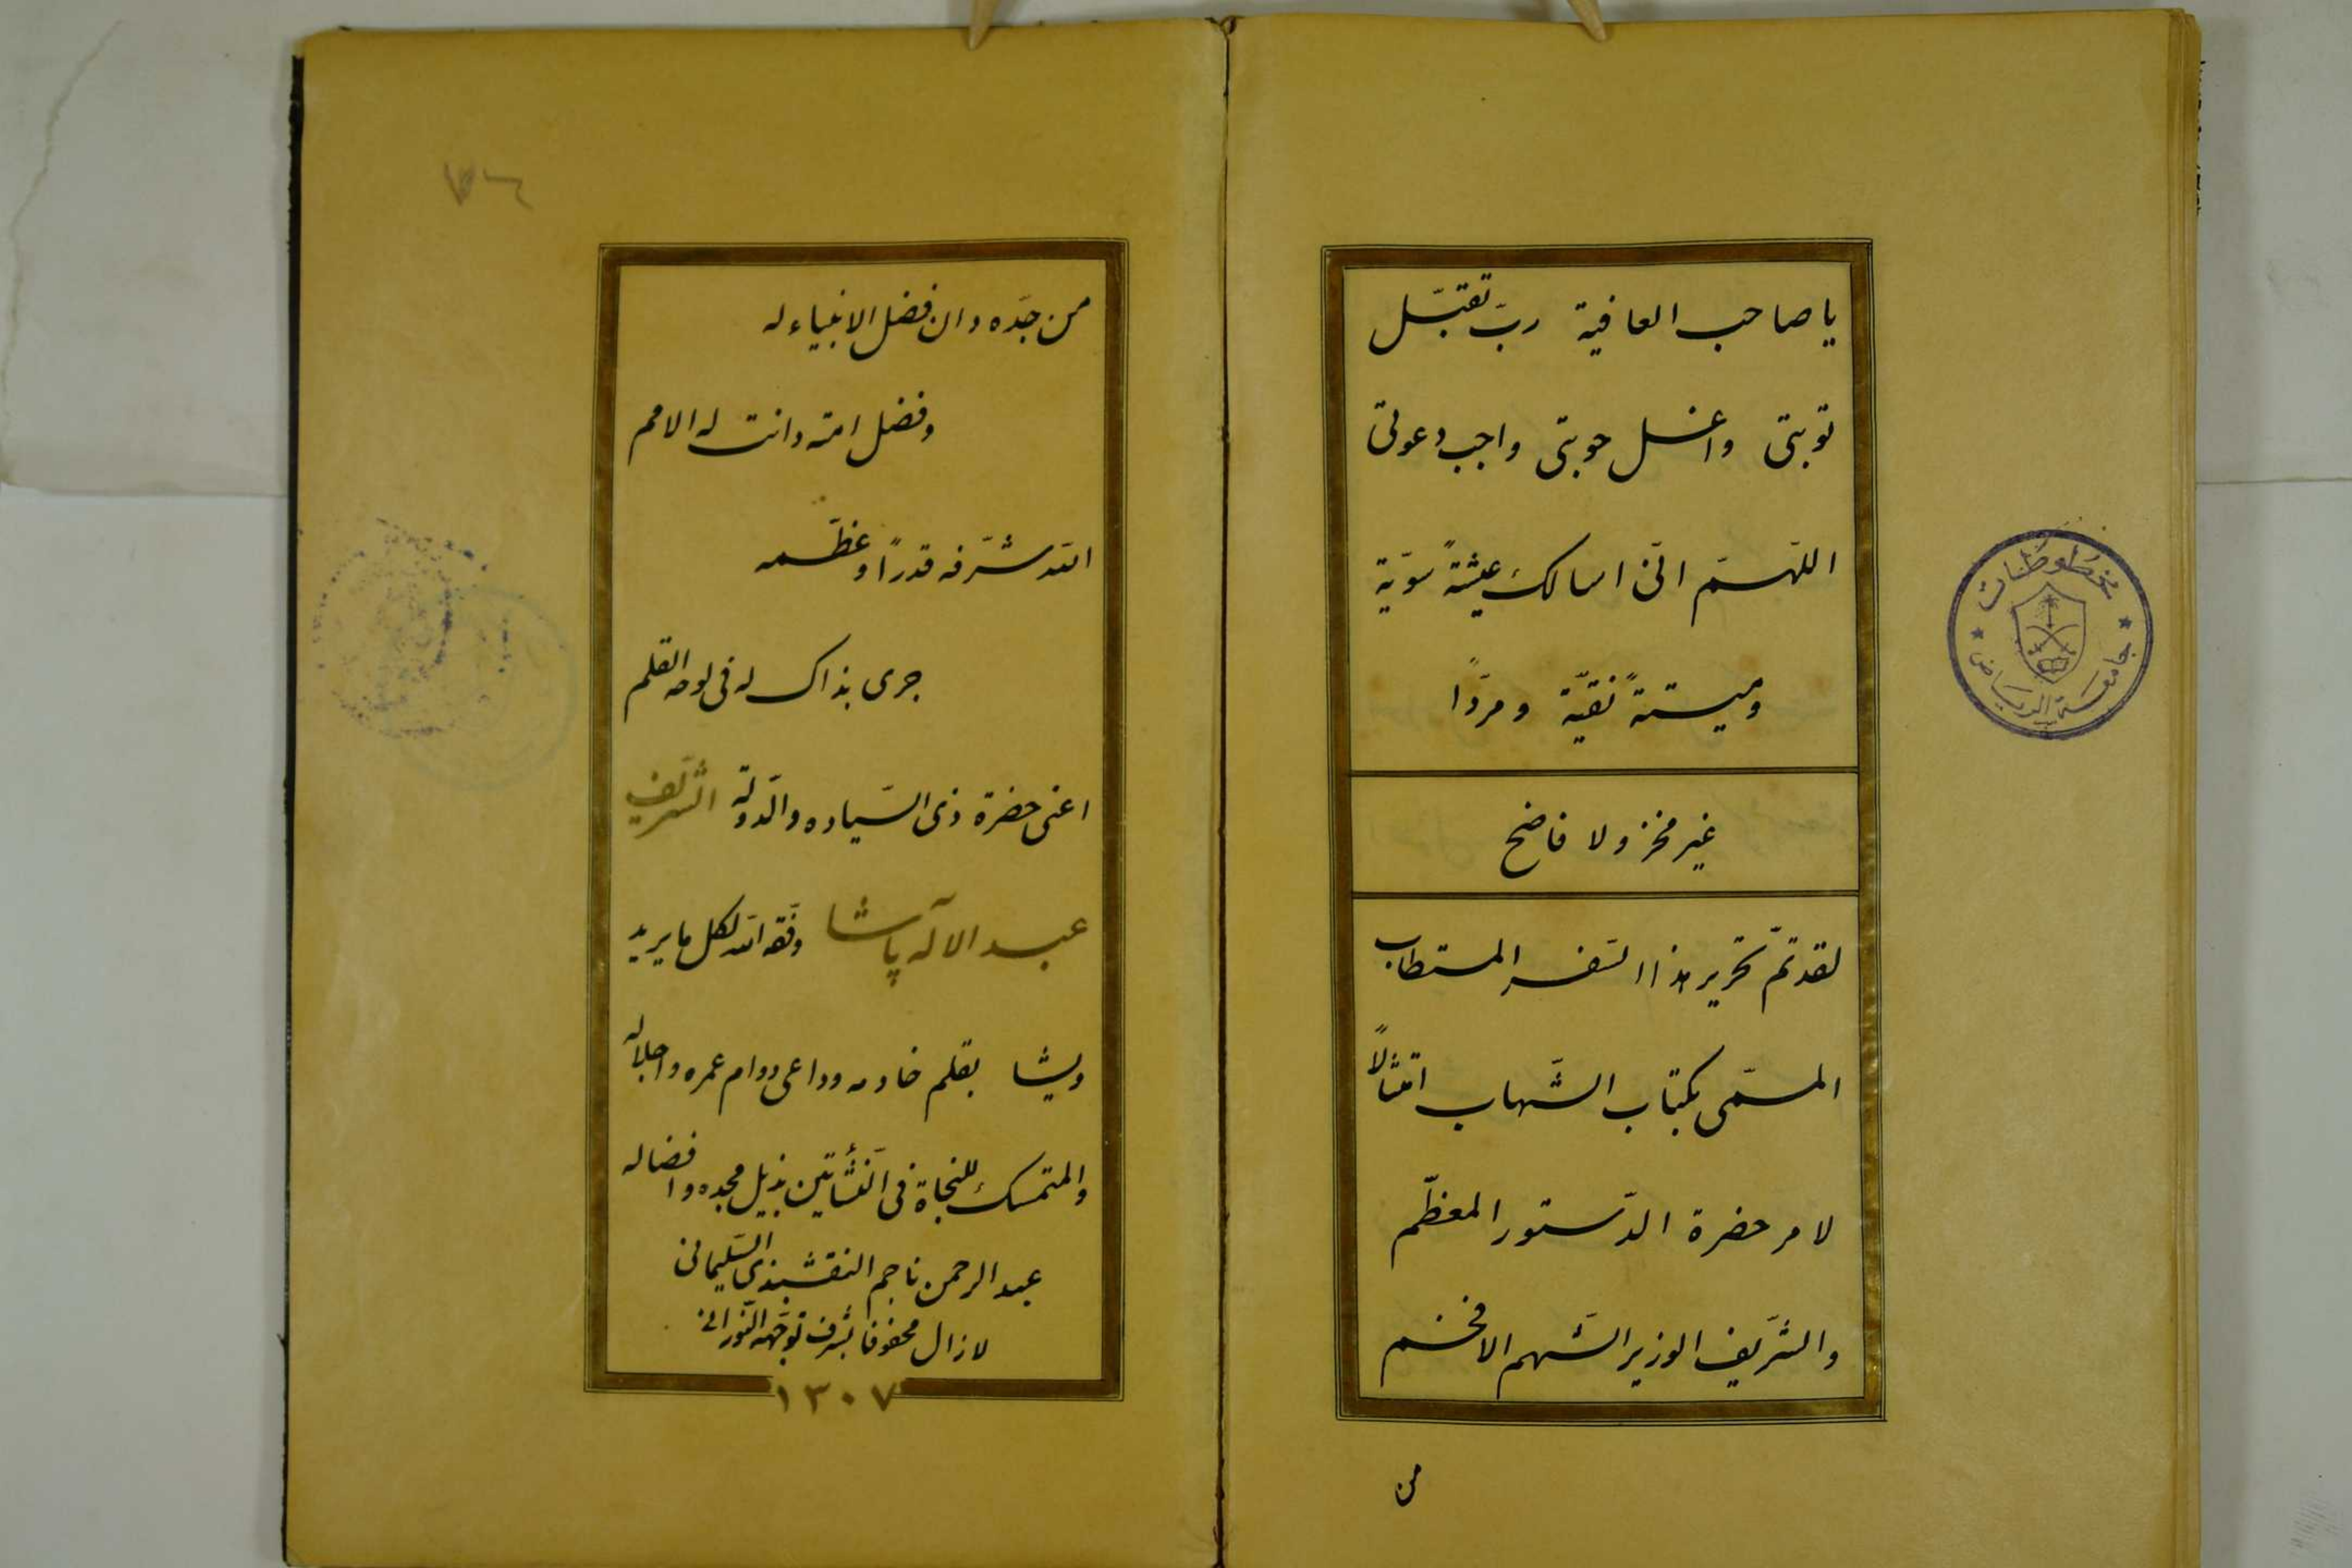 يا صاحب العافية ربّ تقبّل
توبتى واغسل حوبتى واجب دعوتى
اللّهمّ انّى اسالك عيشةً سويّة
وميتةً نقيّة ومردًّا
غير مخز ولا فاضح
لقد تمّ تحرير هذا السّفر المستطاب
المسمّى بكتاب الشّهاب امتثالاً
لامر حضرة الدّستور المعظّم
والشّريف الوزير الشّهم الافخم
من
مخطوطات
جامعة الرياض
من جدّه دان فضل الانبياء له
وفضل امته دانت له الامم
الله شرّفه قدرًا وعظّمه
جرى بذاك له فى لوحه القلم
اعنى حضرة ذى السّياده والدّولة الشّريف
عبد الاله پاشا وفّقه الله لكل ما يريد
ويشا بقلم خادمه وداعى دوام عمره واجلاله
والمتمسك للنجاة فى النّشأتين بذيل مجده وافضاله
عبد الرحمن ناجم النقشبندى السّليمانى
لازال محفوفا بشرف توجّهه النّورانى
١٣٠٧